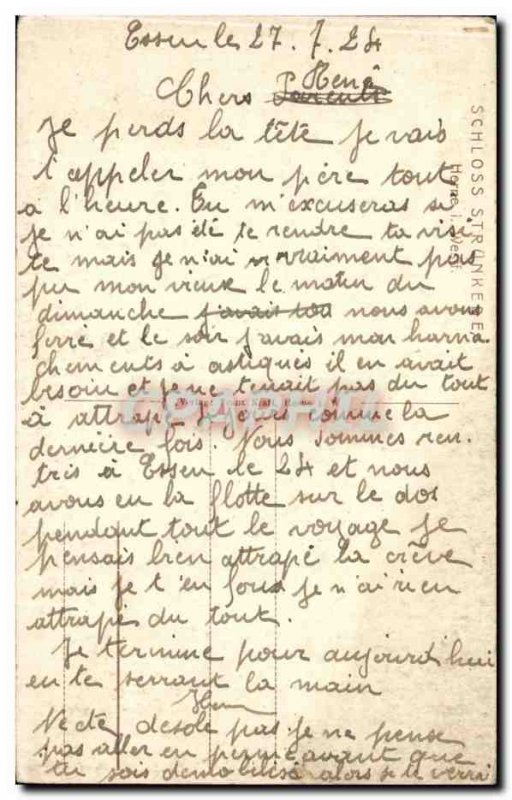 Essen le 27. 7. 24
Chers Parents René
Je perds la tête je vais
t'appeler mon père tout
a l'heure. Tu m'excuseras si
je n'ai pas été te rendre ta visi
te mais je n'ai vraiment pas
pu mon vieux le matin du
dimanche j'avais nous avons
ferré et le soir j'avais mon harna
chements à astiqués il en avait
besoin et je ne tenait pas du tout
à attrapé jours comme la
dernière fois. Nous sommes ren
trés à Essen le 24 et nous
avons eu la flotte sur le dos
pendant tout le voyage je
pensais bien attrapé la crève
mais je t'en fous je n'ai rien
attrapé du tout.
Je termine pour aujourd'hui
en te serrant la main
Ne te désole pas je ne pense
pas aller en perme avant que
tu sois démobilisé alors je te verrai
SCHLOSS STRÜNKEDE
Herne i. Westf.